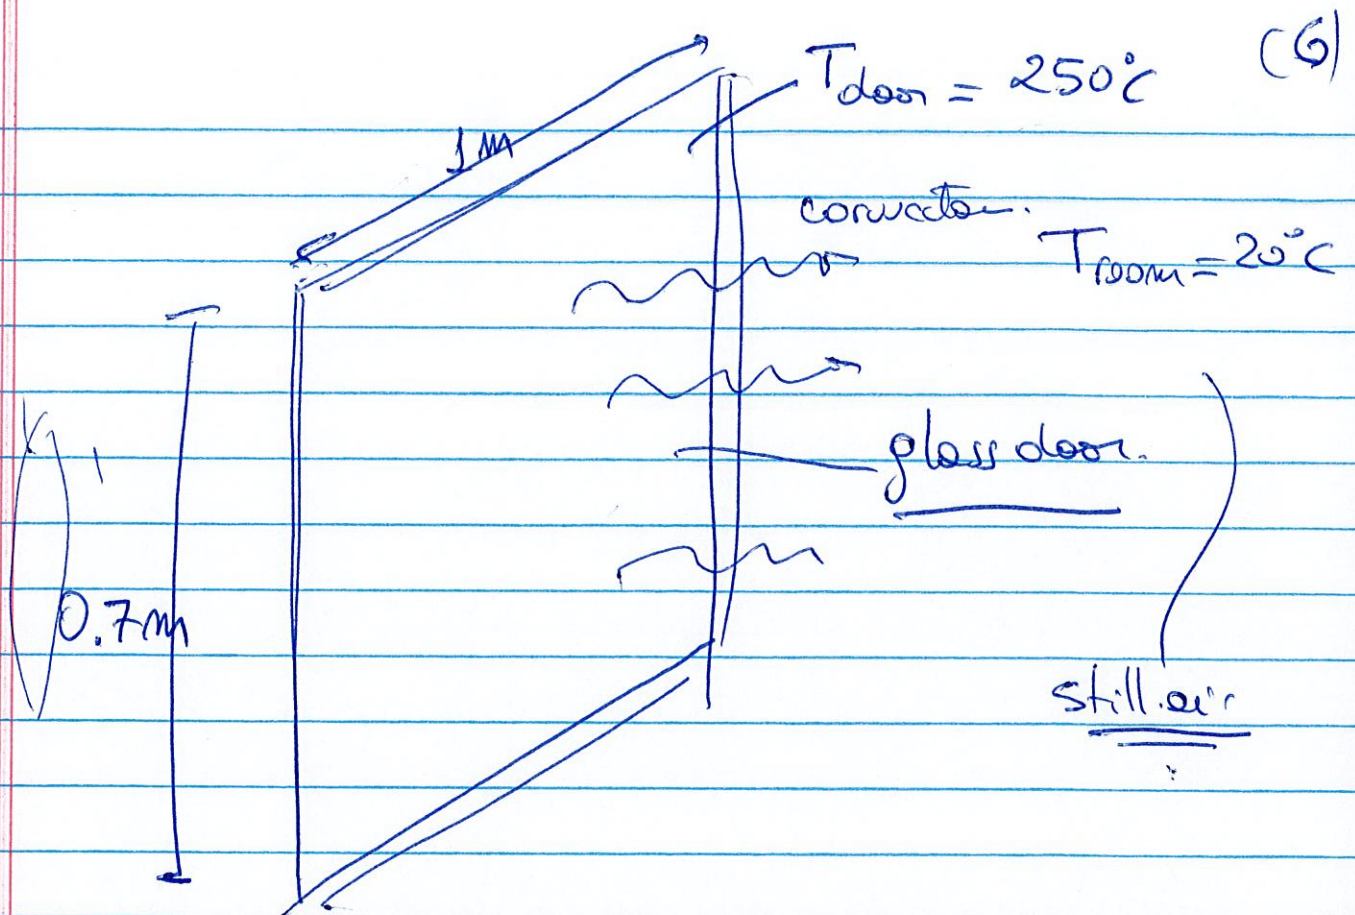 (6)
T door = 250°C
1m
convection.
T room = 20°C
glass door.
0.7m
still air